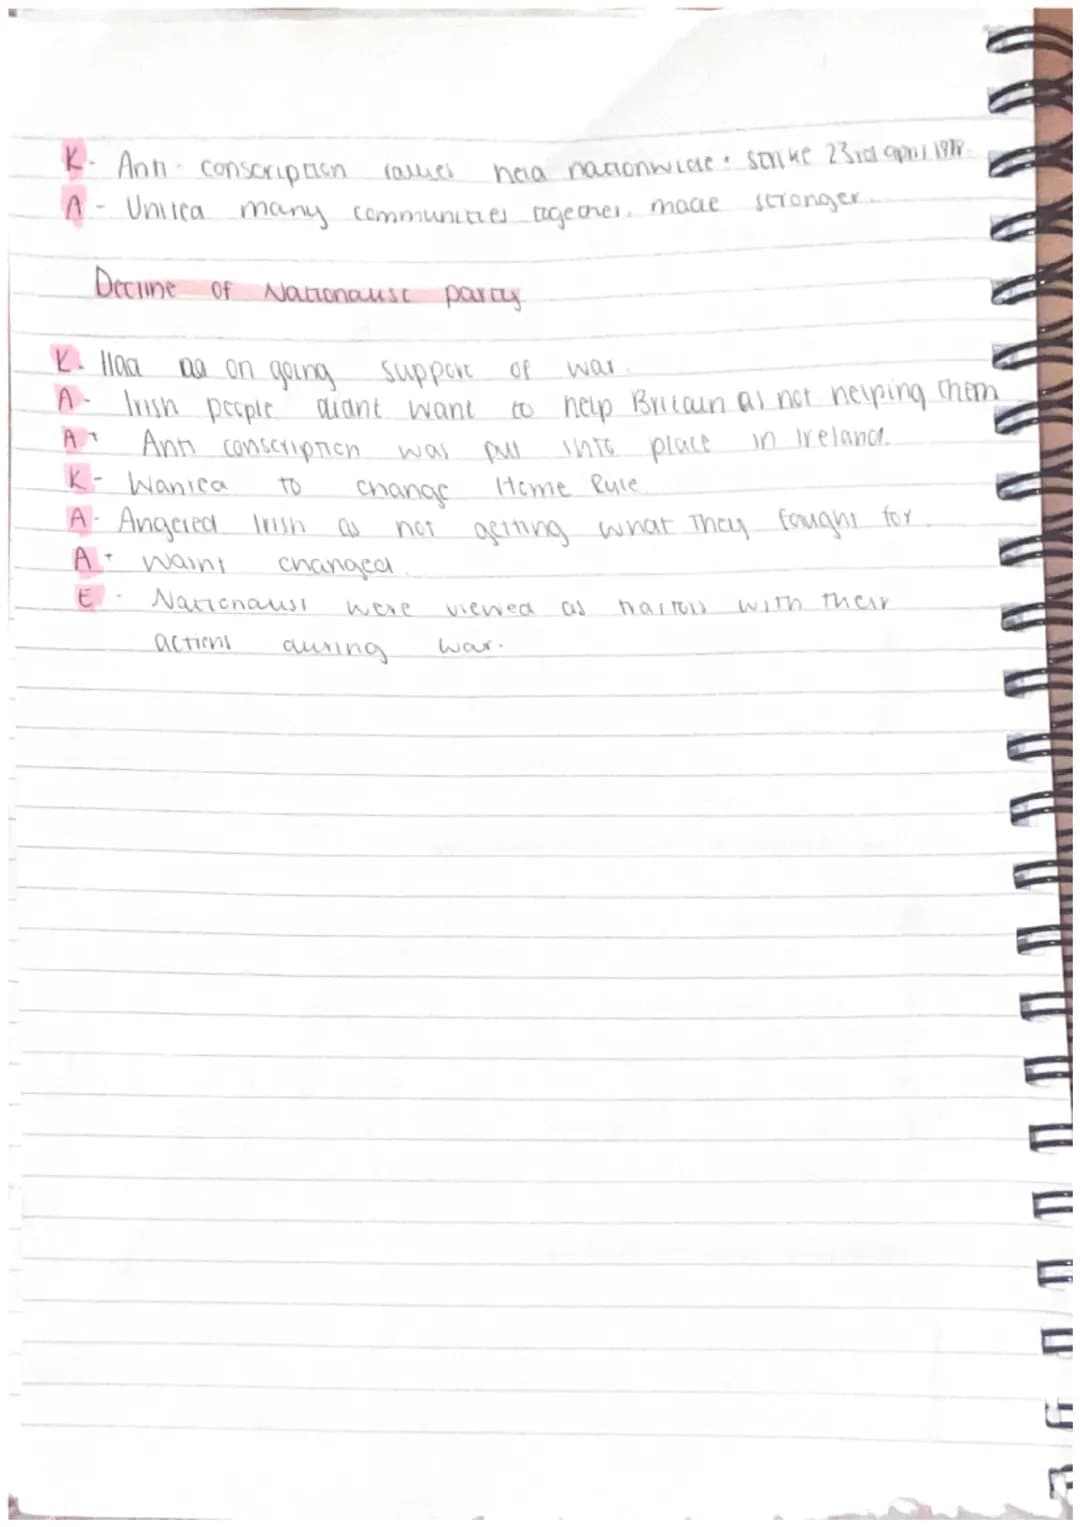 K- Anti-conscription rallies held nationwide + strike 23rd april 1918.
A - United many communities together. made stronger.
Decline of Nationalist party
K. on going support of war.
A- Irish people didnt want to help Britain as not helping them
A+ Anti conscription was put into place in Ireland.
K- Wanted to change Home Rule.
A- Angered Irish as not getting what they fought for.
A+ changed.
E- Nationalist were viewed as traitors with their
actions during war.